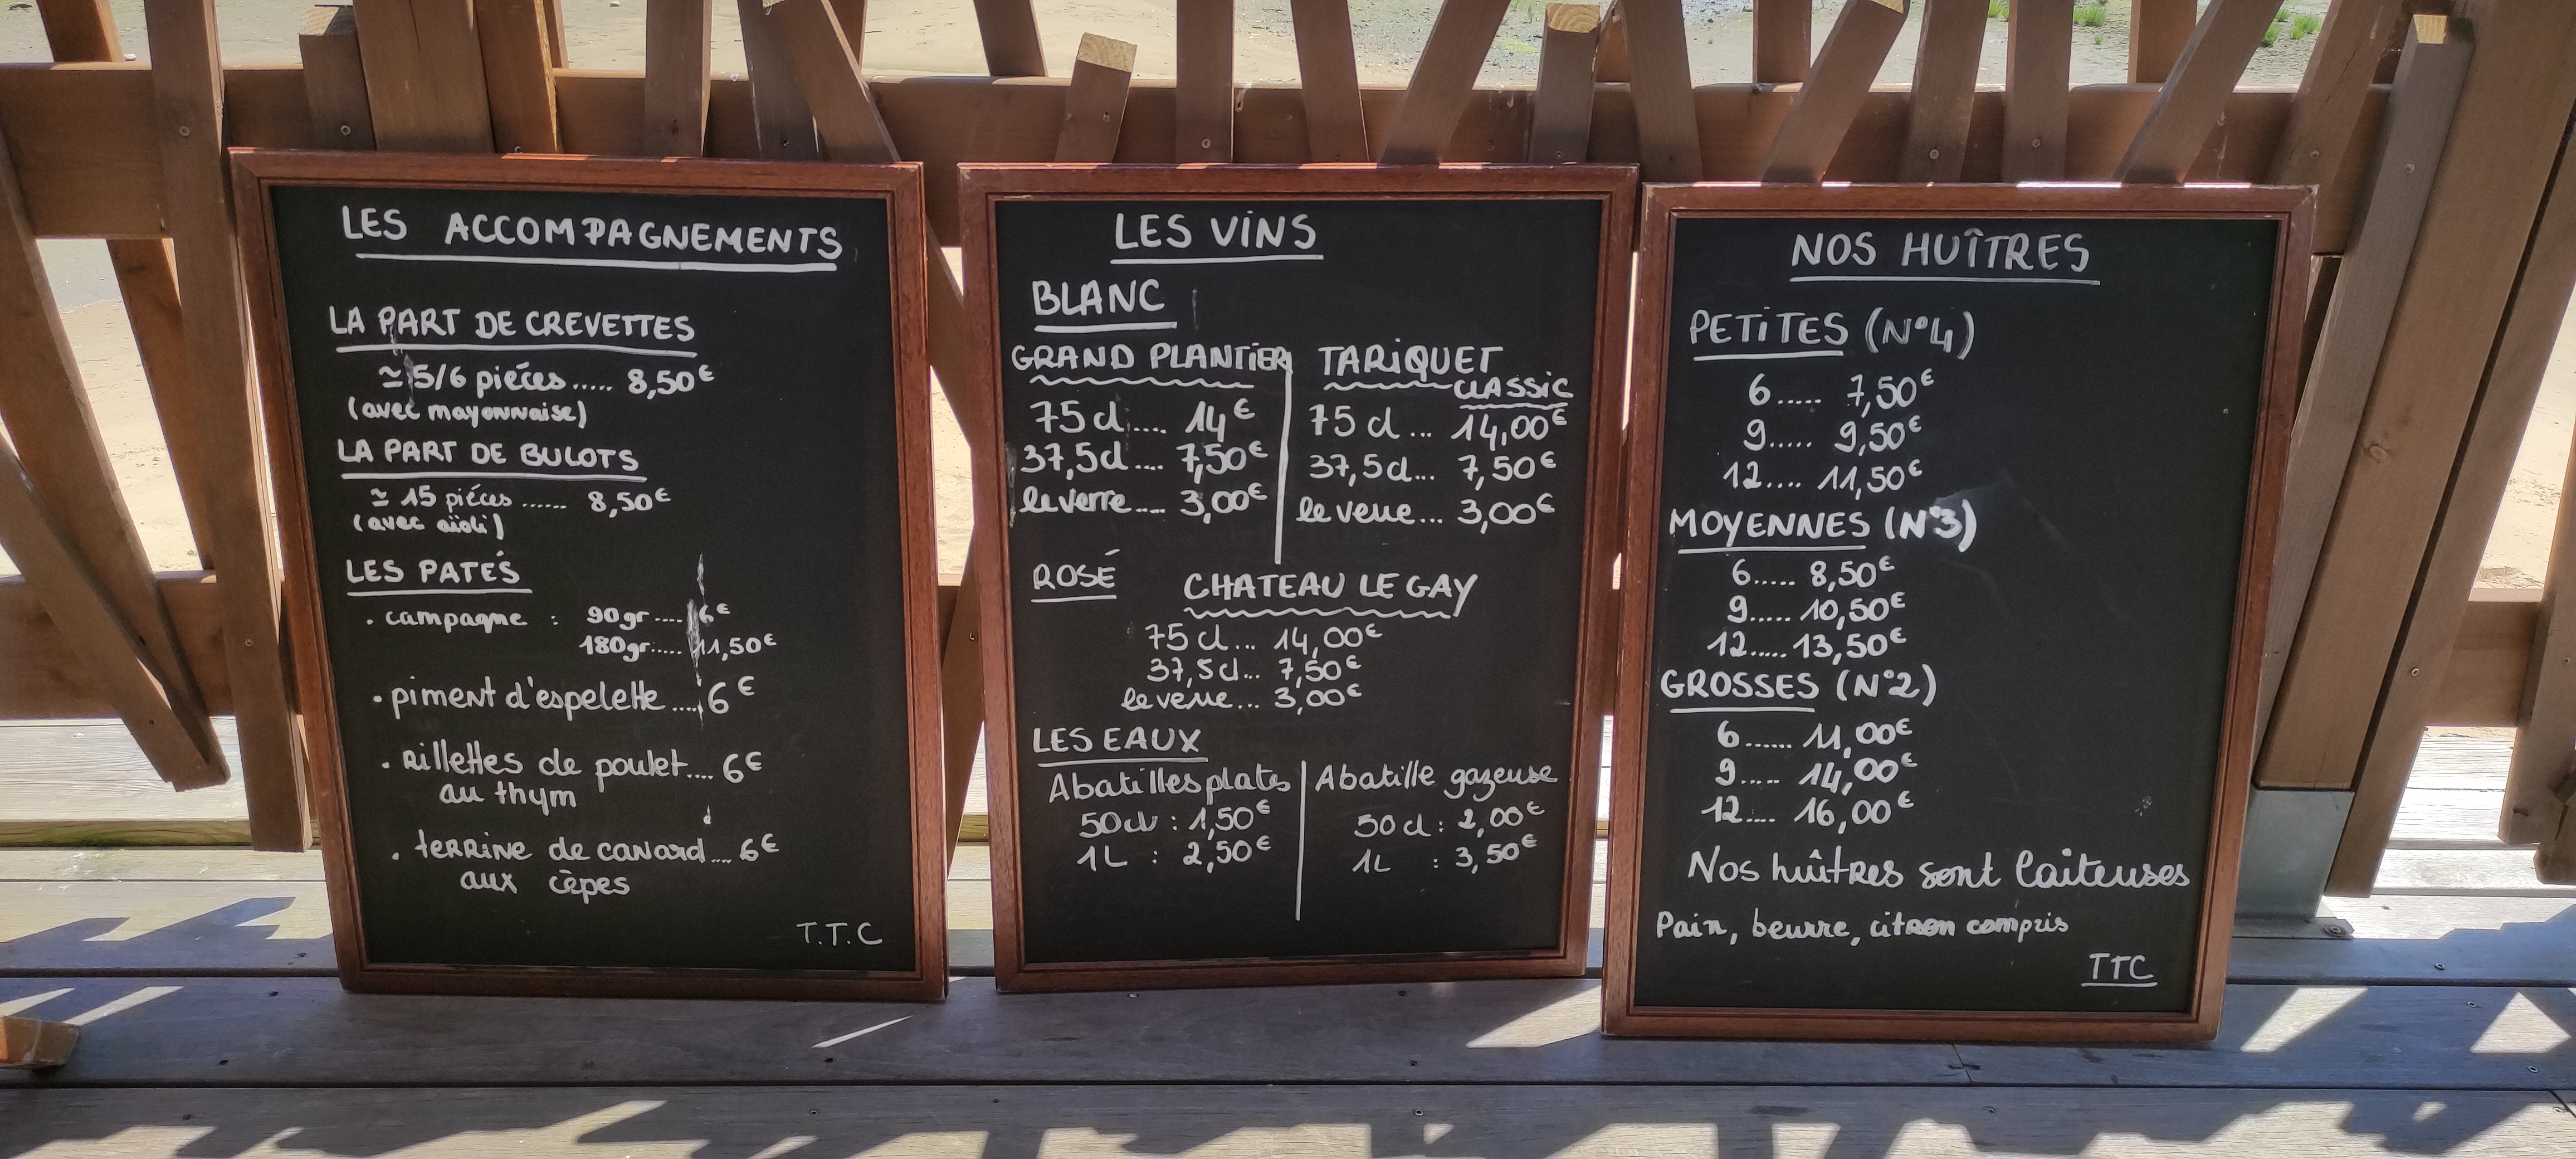 LES ACCOMPAGNEMENTS
LA PART DE CREVETTES
≃ 5/6 piéces ..... 8,50€
(avec mayonnaise)
LA PART DE BULOTS
≃ 15 piéces ...... 8,50€
(avec aïoli)
LES PATÉS
. campagne : 90gr .... 6€
180gr..... 11,50€
. piment d'espelette .... 6€
. Rillettes de poulet.... 6€
au thym
. terrine de canard.... 6€
aux cèpes
T.T.C
LES VINS
BLANC
GRAND PLANTIER
75 cl..... 14€
37,5cl.... 7,50€
le verre.... 3,00€
TARIQUET
CLASSIC
75 cl ... 14,00€
37,5cl... 7,50€
le verre... 3,00€
ROSÉ
CHATEAU LE GAY
75 cl... 14,00€
37,5cl... 7,50€
le verre... 3,00€
LES EAUX
Abatilles plates
50cl : 1,50€
1L : 2,50€
Abatille gazeuse
50 cl : 2,00€
1L : 3,50€
NOS HUÎTRES
PETITES (N°4)
6 ..... 7,50€
9 ..... 9,50€
12 .... 11,50€
MOYENNES (N°3)
6 ..... 8,50€
9 ..... 10,50€
12 ..... 13,50€
GROSSES (N°2)
6 ...... 11,00€
9 ..... 14,00€
12 .... 16,00€
Nos huîtres sont laiteuses
Pain, beurre, citron compris
TTC